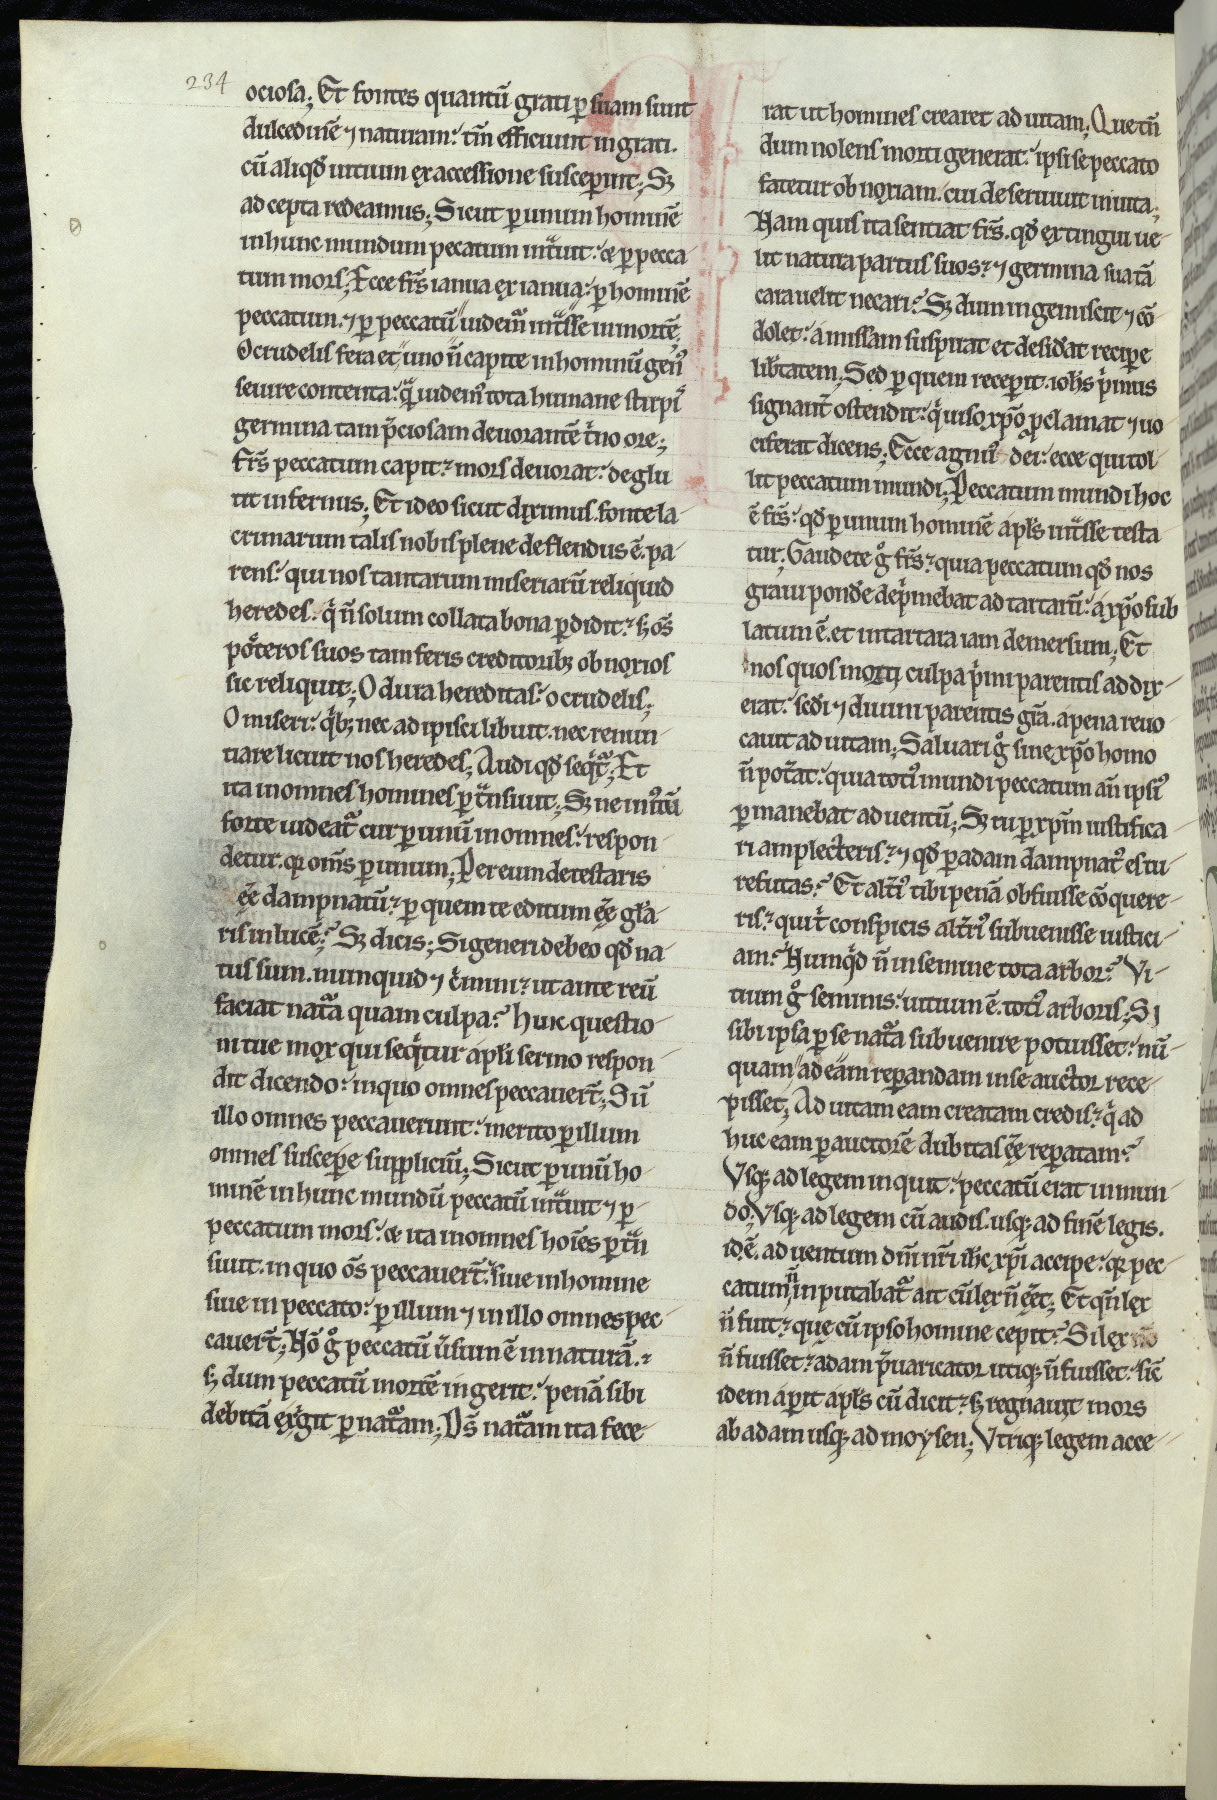 234
ociosa; Et fontes quantū grati ꝑ suam sunt
dulcedinē ⁊ naturam: tm̄ efficiunt ingrati.
cū aliqd̄ uitium ex accessione susceꝑint; Sꝫ
ad cepta redeamus; Sicut ꝑ unum hominē
in hunc mundum pecatum intͣuit: & ꝑ pecca
tum mors; Ecce frs̄ ianua ex ianua: ꝑ hominē
peccatum. ⁊ ꝑ peccatū uidemͣ intͣsse in mortē.
O crudelis fera et uno n̄ capite in hominū genꝰ
seuire contenta: qͣ uidemꝰ tota humane stirpiͤ
germina tam p̄ciosam deuorantē tͥno ore;
frs̄ peccatum capit: mors deuorat: deglu
tit infernus; Et ideo sicut diximus. fonte la-
crimarum talis nobis plene deflendus ē. pa-
rens: qui nos tantarum miseriarū reliquid
heredes. qͥ n̄ solum collata bona ꝑdidit: sꝫ os̄
poͤteros suos tam feris creditoribꝫ obnoxios
sic reliquit; O dura hereditas: o crudelis;
O miseri: qͥbꝫ nec adipisci libuit. nec renun-
tiare licuit nos heredes; Audi qd̄ seqͥtͣ; Et
ita in omnes homines ꝑtͣnsiuit; Sꝫ ne iniꝰtū
forte uideatͣ cur ꝑ unū in omnes: respon-
detur. qꝛ om̄s ꝑ unum; Per eum detestaris
ēē dampnatū: ꝑ quem te editum ēē gl̄a-
ris in lucē; Sꝫ dicis; Si generi debeo qd̄ na-
tus sum. numquid ⁊ cͥmini: ut ante reū
faciat natͣa quam culpa? Huic questio-
ni tue mox qui seqͥtur apl̄i sermo respon-
dit dicendo: in quo omnes peccauer̄t; Sū
illo omnes peccauerunt: merito ꝑ illum
omnes susceꝑe suppliciū; Sicut ꝑ unū ho-
minē in hunc mundū peccatū intͣuit ⁊ ꝑ-
peccatum mors: & ita in omnes hoīes ꝑtͣn
siuit. in quo os̄ peccauer̄t. siue in homine
siue in peccato: ꝑ illum ⁊ in illo omnes pec-
cauer̄t; Nō gͦ peccatū uͥsum ē in naturā.
sꝫ dum peccatū mortē ingerit: penā sibi
debitā exͥgit ꝑ natͣam; Ds̄ natͣam ita fece-
rat ut homines crearet ad uitam; Que tn̄
dum nolens morti generat: ipsi se peccato
fatetur obnoxiam. cui deseruiuit inuita;
Nam quis ita sentiat frs̄. qd̄ extingui ue-
lit natura partus suos: ⁊ germina sua tā
cara uelit necari? Sꝫ dum ingemiscit ⁊ cō-
dolet: amissam suspirat et desid̄at reciꝑe
lib̄tatem; Sed ꝑ quem receꝑit. ioh̄s pͥmus
signant̄ ostendit: qͥ uiso xp̄o ꝓclamat ⁊ uo
ciferat dicens; Ecce agnuͥ dei: ecce qui tol-
lit peccatum mundi; Peccatum mundi hoc
ē frs̄: qd̄ ꝑ unum hominē apl̄s intͣsse testa
tur; Gaudete gͦ frs̄: quia peccatum qd̄ nos
graui pond̄e depͥmebat ad tartarū: a xp̄o sub
latum ē. et in tartara iam demersum; Et
nos quos morti culpa pͥmi parentis addix-
erat: sed̄i ⁊ diuini parentis gr̄a. a pena reuo
cauit ad uitam; Saluari gͦ sine xp̄o homo
n̄ pot̄at: quia totiꝰ mundi peccatum an̄ ipsiꝰ
ꝑmanebat aduentū; Sꝫ tu ꝑ xp̄m iustifica-
ri amplecteris: ⁊ qd̄ ꝑ adam dampnatꝰ es tu
refutas? Et alt̄iꝰ tibi penā obfuisse cōquere-
ris: qui tͥ conspicis alt̄iꝰ subuenisse iustici-
am? Numqͥd n̄ in semine tota arbor? Vi-
tium gͦ seminis: uitium ē. totiꝰ arboris; Si
sibi ipsa ꝑ se natͣa subuenire potuisset: nū-
quam ad eam reꝑandam in se auctor rece-
pisset; Ad uitam eam creatam credis: qͥ ad
huc eam ꝑ auctorē dubitas ēē reꝑatam?
Vsqꝫ ad legem inquit: peccatū erat in mun-
do; Vsqꝫ ad legem cū audis. usqꝫ ad finē legis.
id.ē. ad uentum dn̄i nr̄i ih̄c xp̄i accipe: qꝛ pec-
catum n̄ inputabatͣ ait cū lex n̄ ēēt; Et qn̄ lex
n̄ fuit: quę cū ipso homine cepit? Si lex nō
n̄ fuisset: adam p̄uaricator utiqꝫ n̄ fuisset: sic̄
idem aꝑit apl̄s cū dicit: sꝫ regnauit mors
ab adam usqꝫ ad moysen; Vtriqꝫ legem acce-